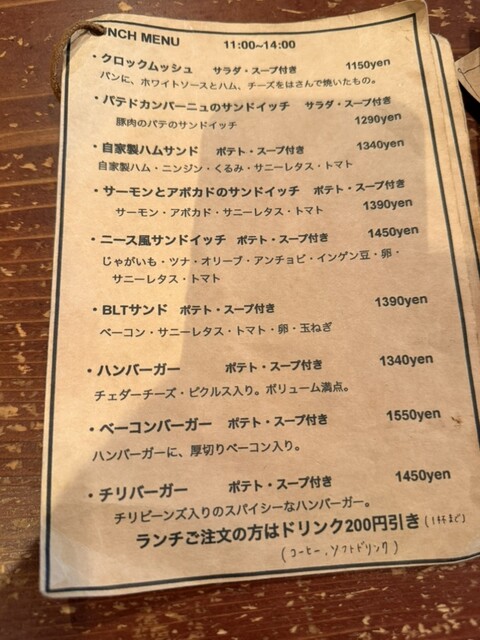 NCH MENU 11:00~14:00
・クロックムッシュ サラダ・スープ付き 1150yen
パンに、ホワイトソースとハム、チーズをはさんで焼いたもの。
・パテドカンパーニュのサンドイッチ サラダ・スープ付き
豚肉のパテのサンドイッチ 1290yen
・自家製ハムサンド ポテト・スープ付き 1340yen
自家製ハム・ニンジン・くるみ・サニーレタス・トマト
・サーモンとアボカドのサンドイッチ ポテト・スープ付き
サーモン・アボカド・サニーレタス・トマト 1390yen
・ニース風サンドイッチ ポテト・スープ付き 1450yen
じゃがいも・ツナ・オリーブ・アンチョビ・インゲン豆・卵・
サニーレタス・トマト
・BLTサンド ポテト・スープ付き 1390yen
ベーコン・サニーレタス・トマト・卵・玉ねぎ
・ハンバーガー ポテト・スープ付き 1340yen
チェダーチーズ・ピクルス入り。ボリューム満点。
・ベーコンバーガー ポテト・スープ付き 1550yen
ハンバーガーに、厚切りベーコン入り。
・チリバーガー ポテト・スープ付き 1450yen
チリビーンズ入りのスパイシーなハンバーガー。
ランチご注文の方はドリンク200円引き (1杯まで)
(コーヒー、ソフトドリンク)